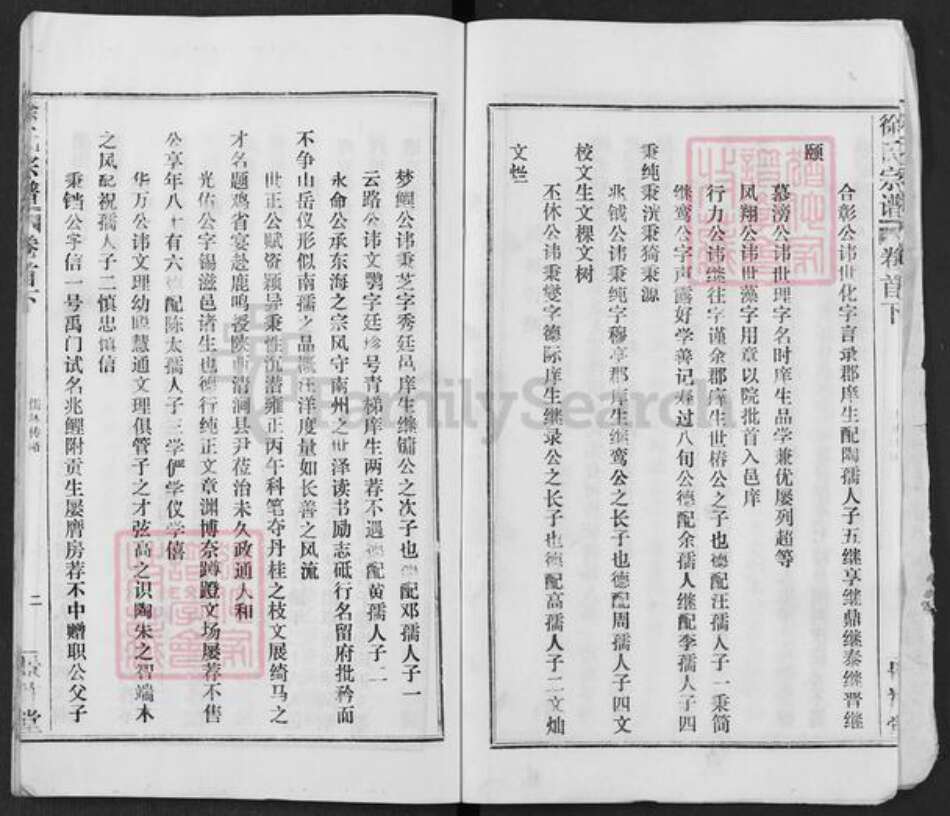 徐氏宗谱 卷首下
合彰公讳世化字言录郡庠生配陶孺人子五继享继鼎继泰继晋继
颐
慕滂公讳世理字名时庠生品学兼优屡列超等
凤翔公讳世藻字用章以院批首入邑庠
行力公讳继往字谨余郡庠生世椿公之子也德配汪孺人子一秉简
继鸾公字声露好学善记寿过八旬公德配余孺人继配李孺人子四
秉纯秉洸秉猗秉源
兆钺公讳秉纯字穆亭郡庠生继鸾公之长子也德配周孺人子四文
校文生文棵文树
丕休公讳秉燮字德际庠生继录公之长子也德配高孺人子二文灿
文烂
梦鲤公讳秉芝字秀廷邑庠生继镛公之次子也德配邓孺人子一
云路公讳文鹗字廷珍号青梯庠生两荐不遇德配黄孺人子二
永命公承东海之宗风守南州之世泽读书励志砥行名留府批矜而
不争山岳仪形似南孺之品概汪洋度量如长善之风流
世正公赋资颖异秉性沉潜雍正丙午科笔夺丹桂之枝文展绮马之
才名题鸡省宴赴鹿鸣授陕西潜涧县尹莅治未久政通人和
光佑公字锡滋邑诸生也德行纯正文章渊博奈蹲蹬文场屡荐不售
公享年八十有六德配陈太孺人子三学俨学仪学僖
华万公讳文理幼聪慧通文理俱管子之才弦高之识陶朱之智端木
之风配祝孺人子二慎忠慎信
秉铛公字信一号禹门试名兆鲤附贡生屡膺房荐不中赠职公父子
徐氏宗谱 卷首下
儒林传略
二
堂